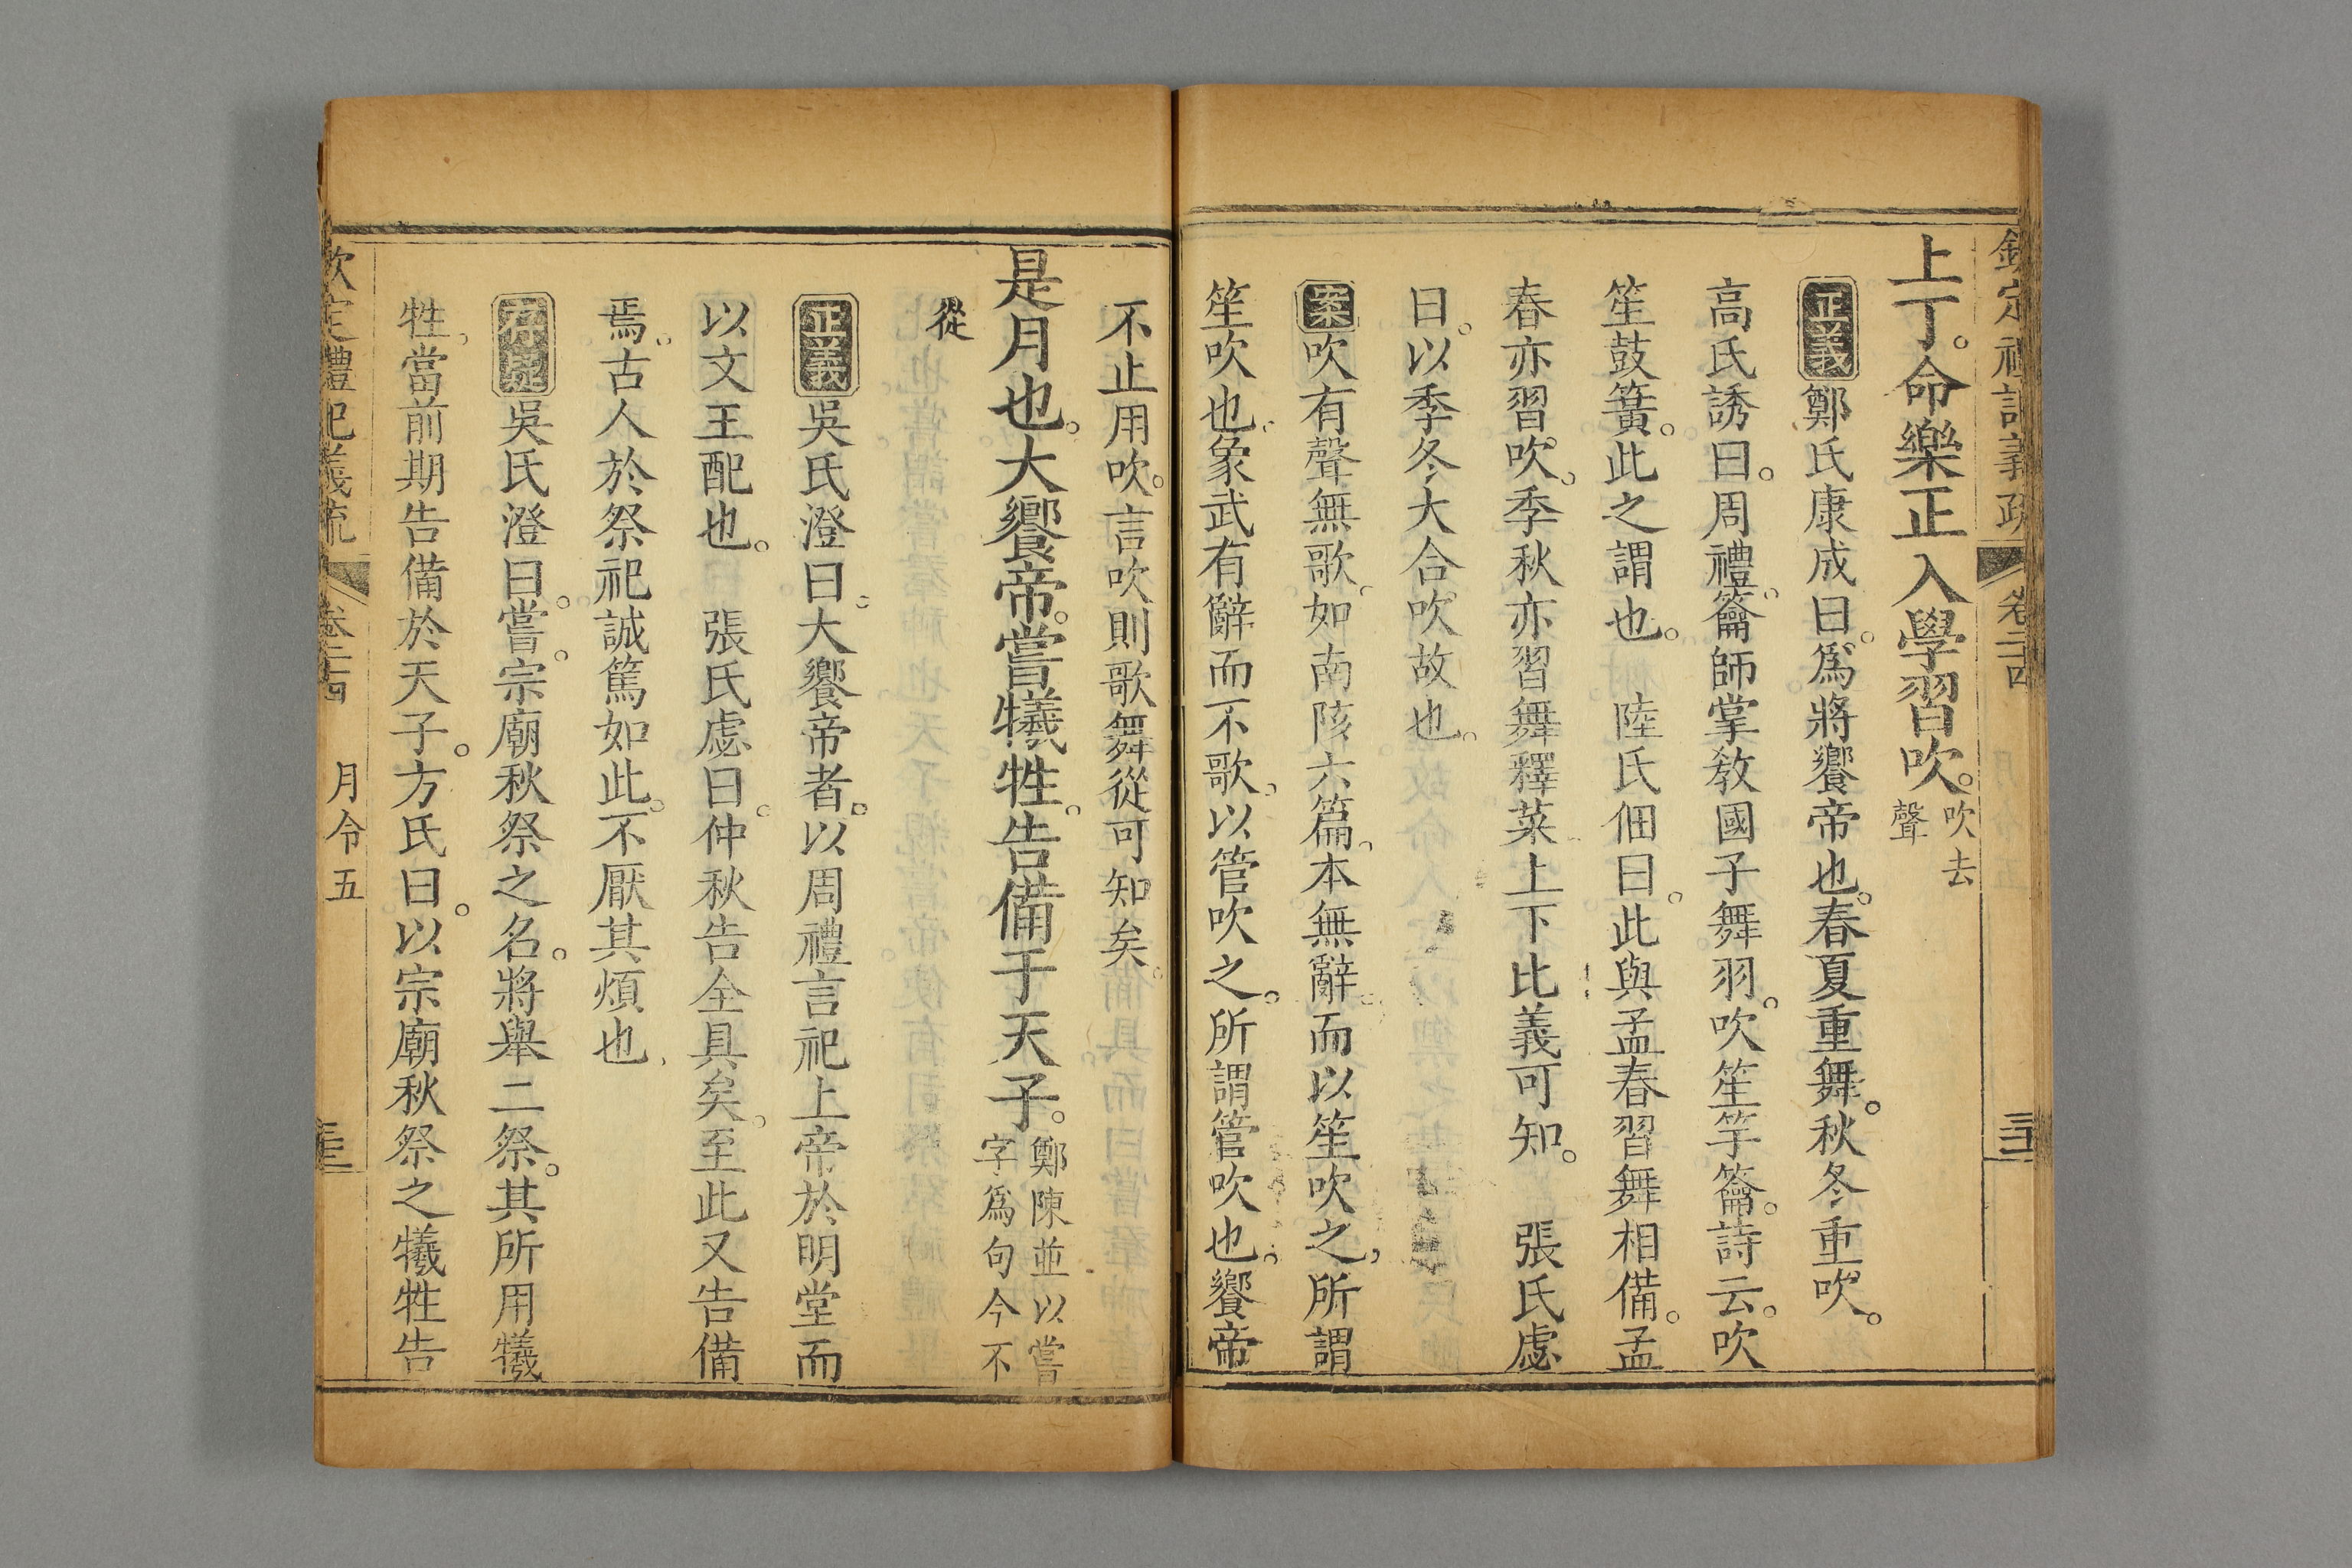 欽定禮記義疏 卷二十四
上丁。命樂正入學習吹。吹去聲
正義鄭氏康成曰。爲將饗帝也。春夏重舞。秋冬重吹。
高氏誘曰。周禮。籥師掌敎國子舞羽。吹笙竽籥。詩云。吹
笙鼓簧。此之謂也。 陸氏佃曰。此與孟春習舞相備。孟
春亦習吹。季秋亦習舞釋菜上下比義可知。 張氏虙
曰。以季冬大合吹故也。
案吹有聲無歌。如南陔六篇。本無辭。而以笙吹之，所謂
笙吹也。象武有辭而不歌。以管吹之。所謂管吹也。饗帝
不止用吹。言吹則歌舞從可知矣。
是月也。大饗帝。嘗犧牲。告備于天子。鄭陳並以嘗字爲句今不
從
正義吳氏澄曰。大饗帝者。以周禮言祀上帝於明堂而
以文王配也。 張氏虙曰。仲秋告全具矣。至此又告備
焉。古人於祭祀誠篤如此。不厭其煩也。
存疑吳氏澄曰。嘗。宗廟秋祭之名。將舉二祭。其所用犧
牲。當前期告備於天子。方氏曰。以宗廟秋祭之犧牲告
欽定禮記義疏 卷二十四 月令五